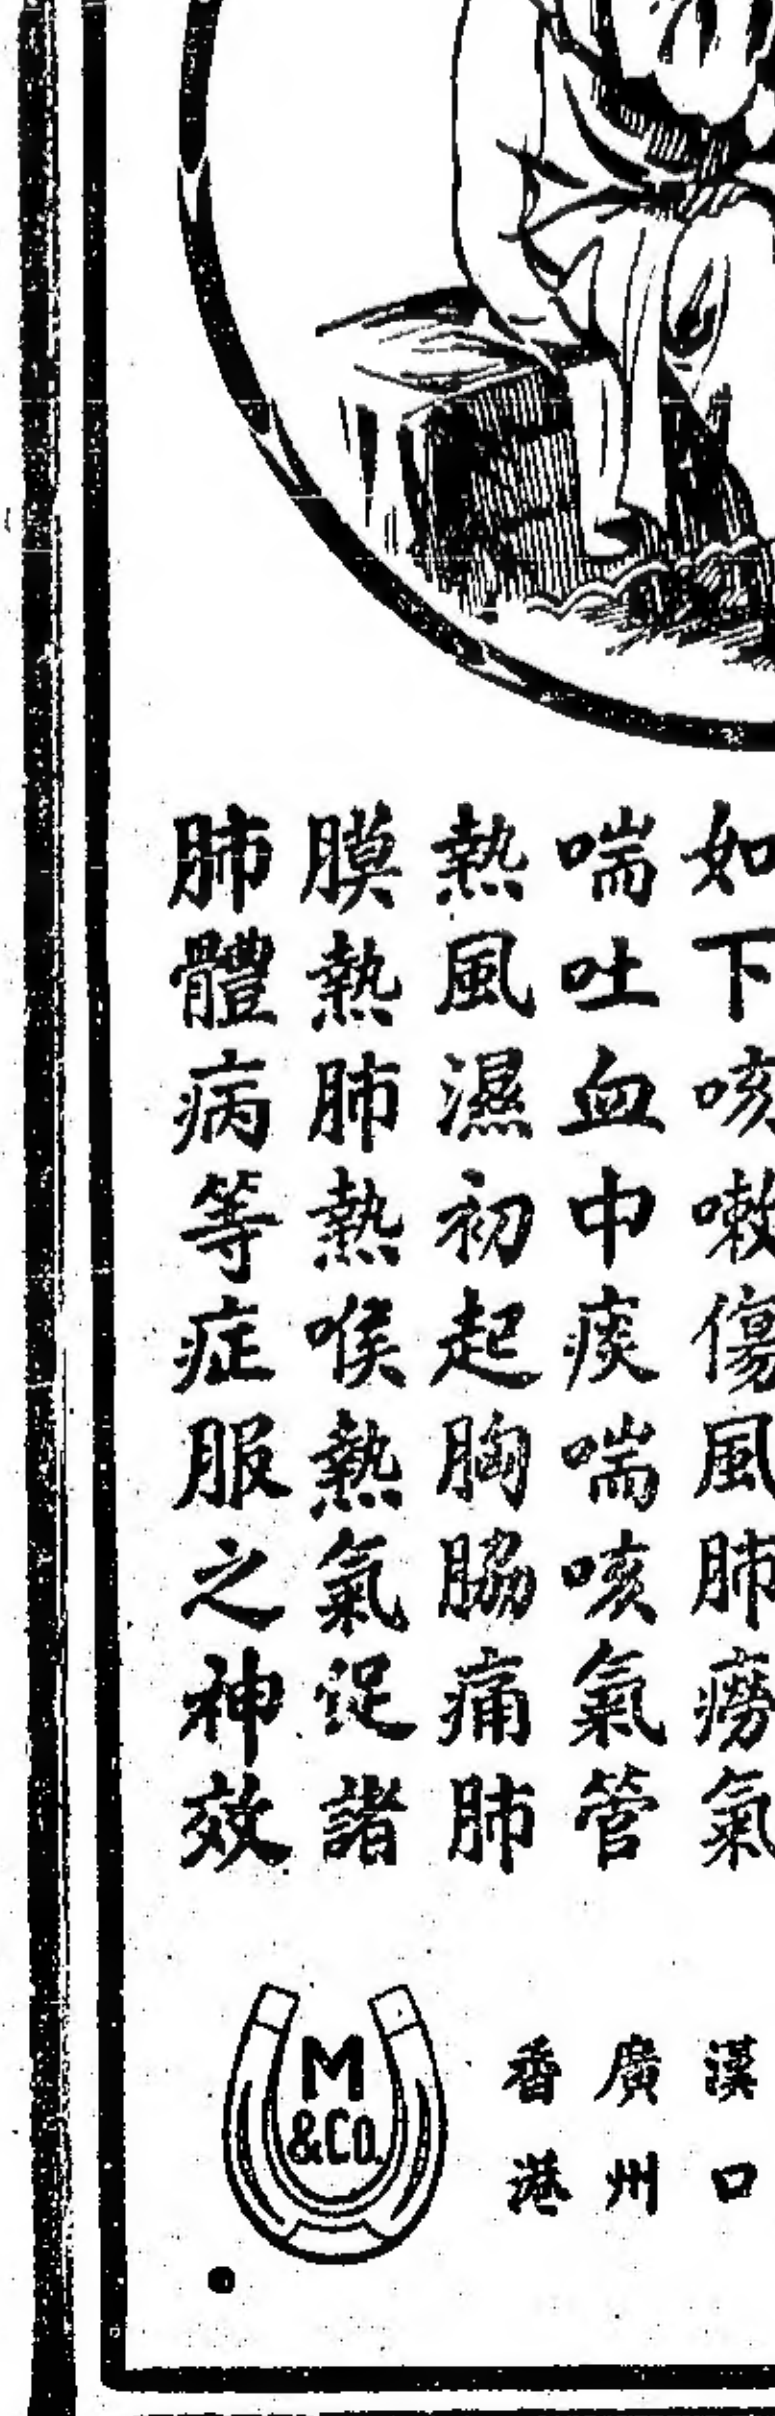 如下咳嗽傷風肺癆氣
喘吐血中痰喘咳氣管
熱風濕初起胸脇痛肺
膜熱肺熱喉熱氣促諸
肺體病等症服之神效
漢口
廣州
香港
M
&Co.